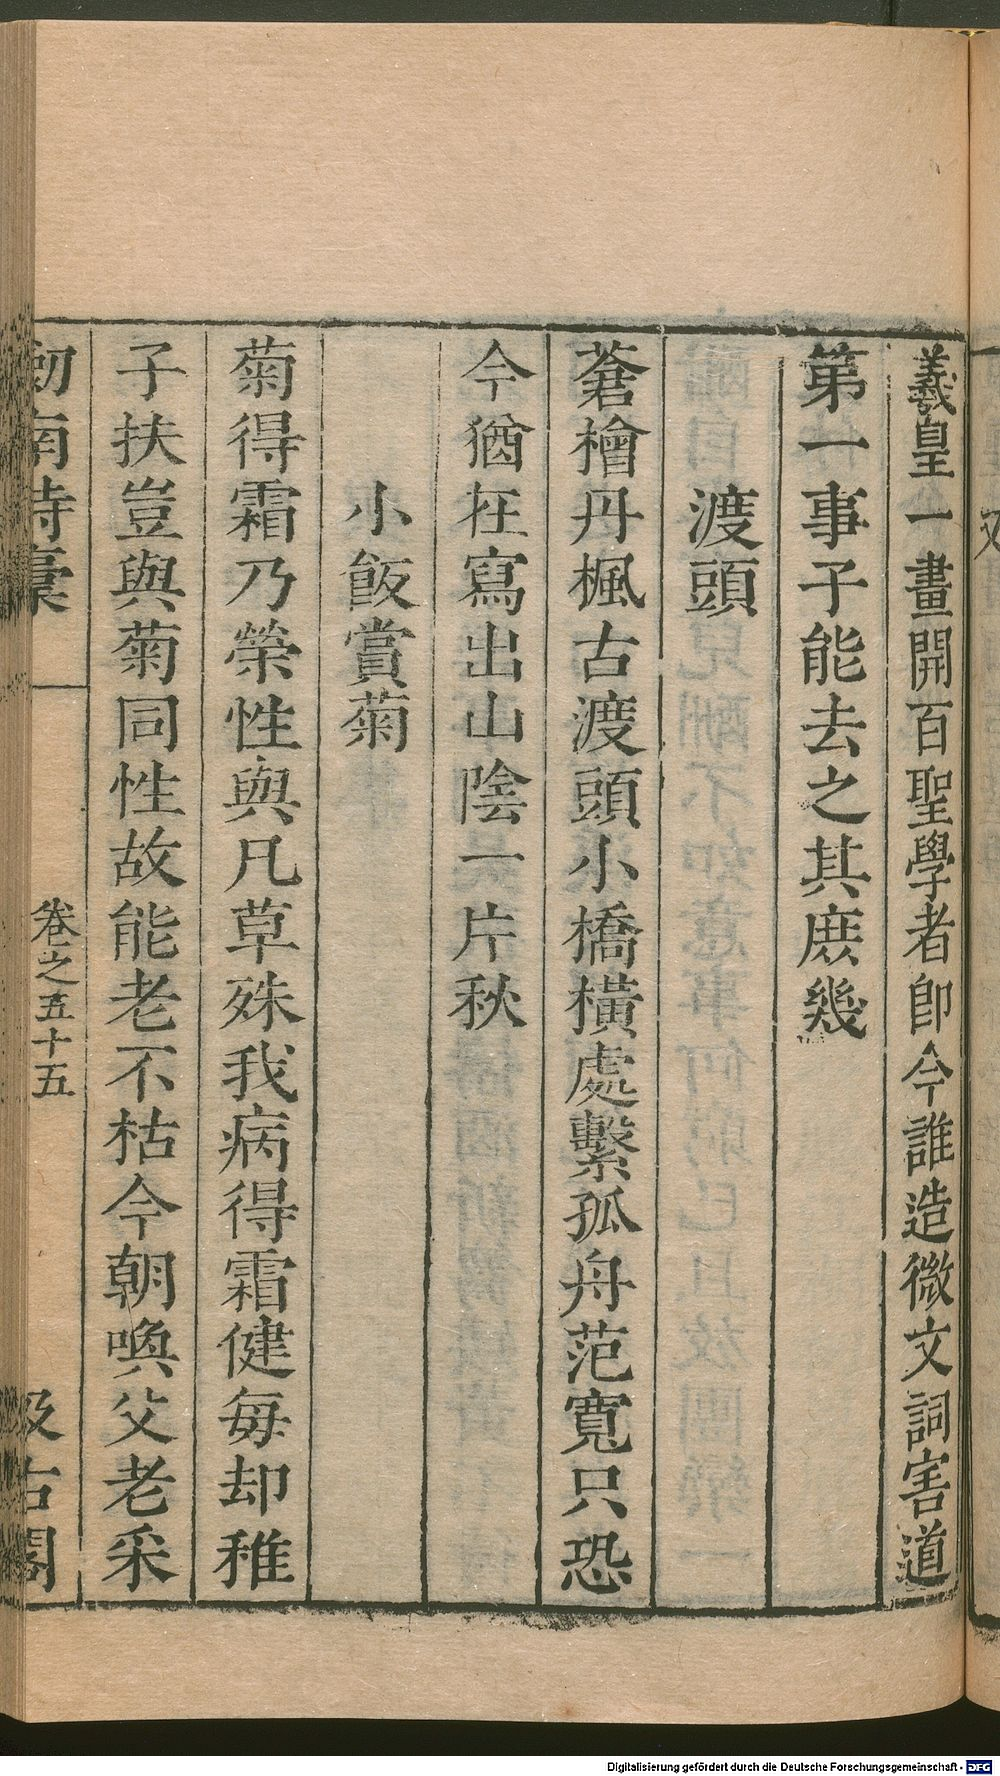 羲皇一畫開百聖學者卽今誰造微文詞害道
第一事子能去之其庶幾
渡頭
蒼檜丹楓古渡頭小橋橫處繫孤舟范寬只恐
今猶在寫出山陰一片秋
小飯賞菊
菊得霜乃榮性與凡草殊我病得霜健每却稚
子扶豈與菊同性故能老不枯今朝喚父老采
劎南詩稾
卷之五十五
汲古閣
Digitalisierung gefördert durch die Deutsche Forschungsgemeinschaft - DFG